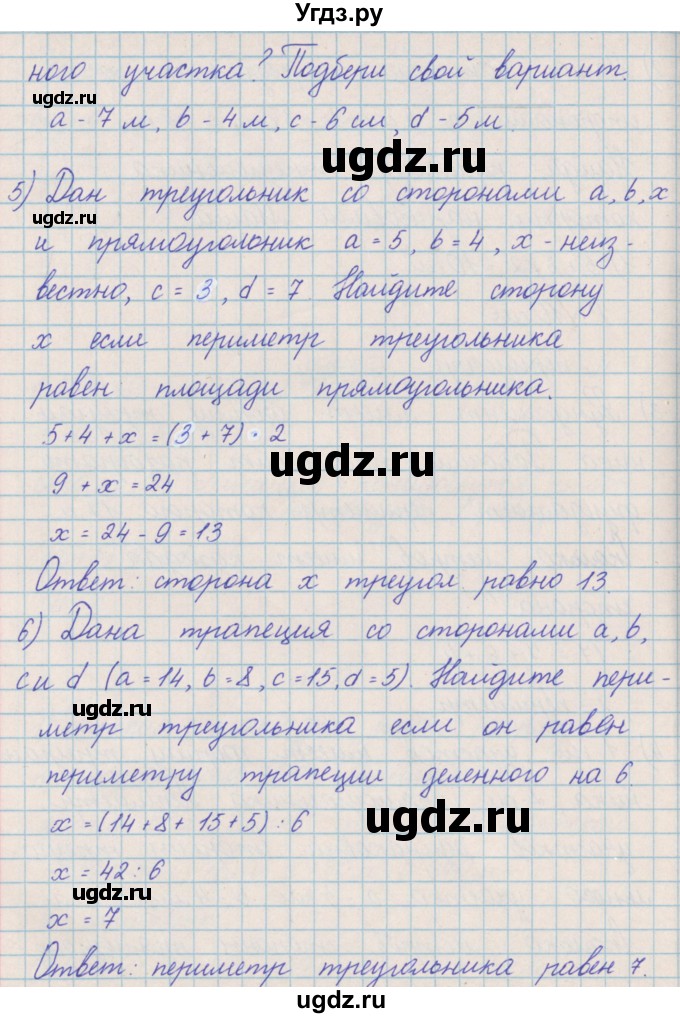 Угдз.ру
ного участка? Подбери свой вариант.
ugdz.ru
a - 7 м, b - 4 м, c - 6 см, d - 5 м.
ugdz.ru
5) Дан треугольник со сторонами a, b, x
ugdz.ru
и прямоугольник a = 5, b = 4, x - неиз-
вестно, c = 3, d = 7 Найдите сторону
x если периметр треугольника
равен площади прямоугольника.
ugdz.ru
5 + 4 + x = (3 + 7) · 2
ugdz.ru
9 + x = 24
ugdz.ru
x = 24 - 9 = 13
Ответ: сторона x треугол. равно 13.
6) Дана трапеция со сторонами a, b,
c и d (a = 14, b = 8, c = 15, d = 5). Найдите пери-
ugdz.ru
метр треугольника если он равен
периметру трапеции деленного на 6.
x = (14 + 8 + 15 + 5) : 6
ugdz.ru
x = 42 : 6
ugdz.ru
x = 7
Ответ: периметр треугольника равен 7.
ugdz.ru